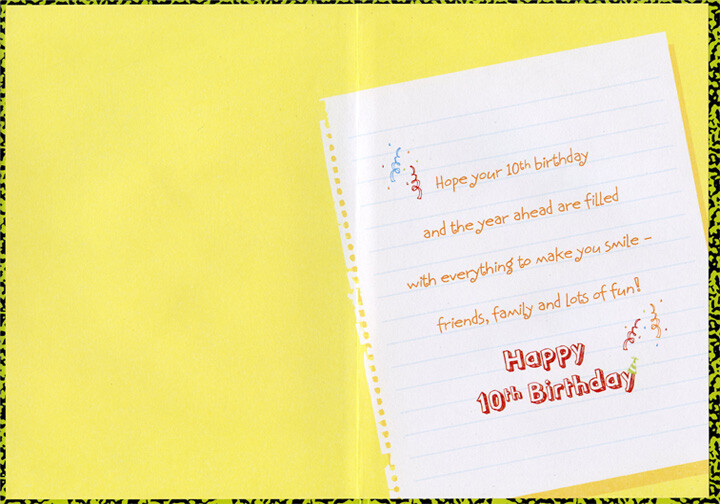 Hope your 10th birthday
and the year ahead are filled
with everything to make you smile –
friends, family and lots of fun!
Happy
10th Birthday